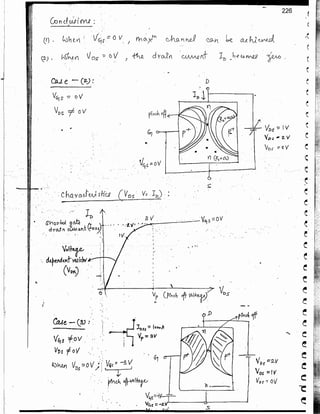 226
Conclusions :
(1). When VGS = 0V, maxm channel can be achieved
(2). When VDS = 0V, the drain current ID becomes zero.
Case - (2):
VGS = 0V
VDS ≠ 0V
D
ID ↓
n
pinch off
G
P+
P+
VDS = 1V
VDS = 2V
VDS = 4V
n
VGS = 0V
S
Characteristics (VDS Vs ID) :
ID
Shorted gate
drain current (IDSS)
2V
VGS = 0V
1V
Voltage
dependent resistor
(VDR)
0
VP (Pinch off voltage)
VDS
Case - (3):
VGS ≠ 0V
VDS ≠ 0V
When VDS = 0V ; VGS = -2V
pinch off voltage
IDSS = 10mA
VP = 2V
D
pinch off
G
P+
P+
n
VDS = 2V
VDS = 1V
VDS = 0V
VGS = -2V
S